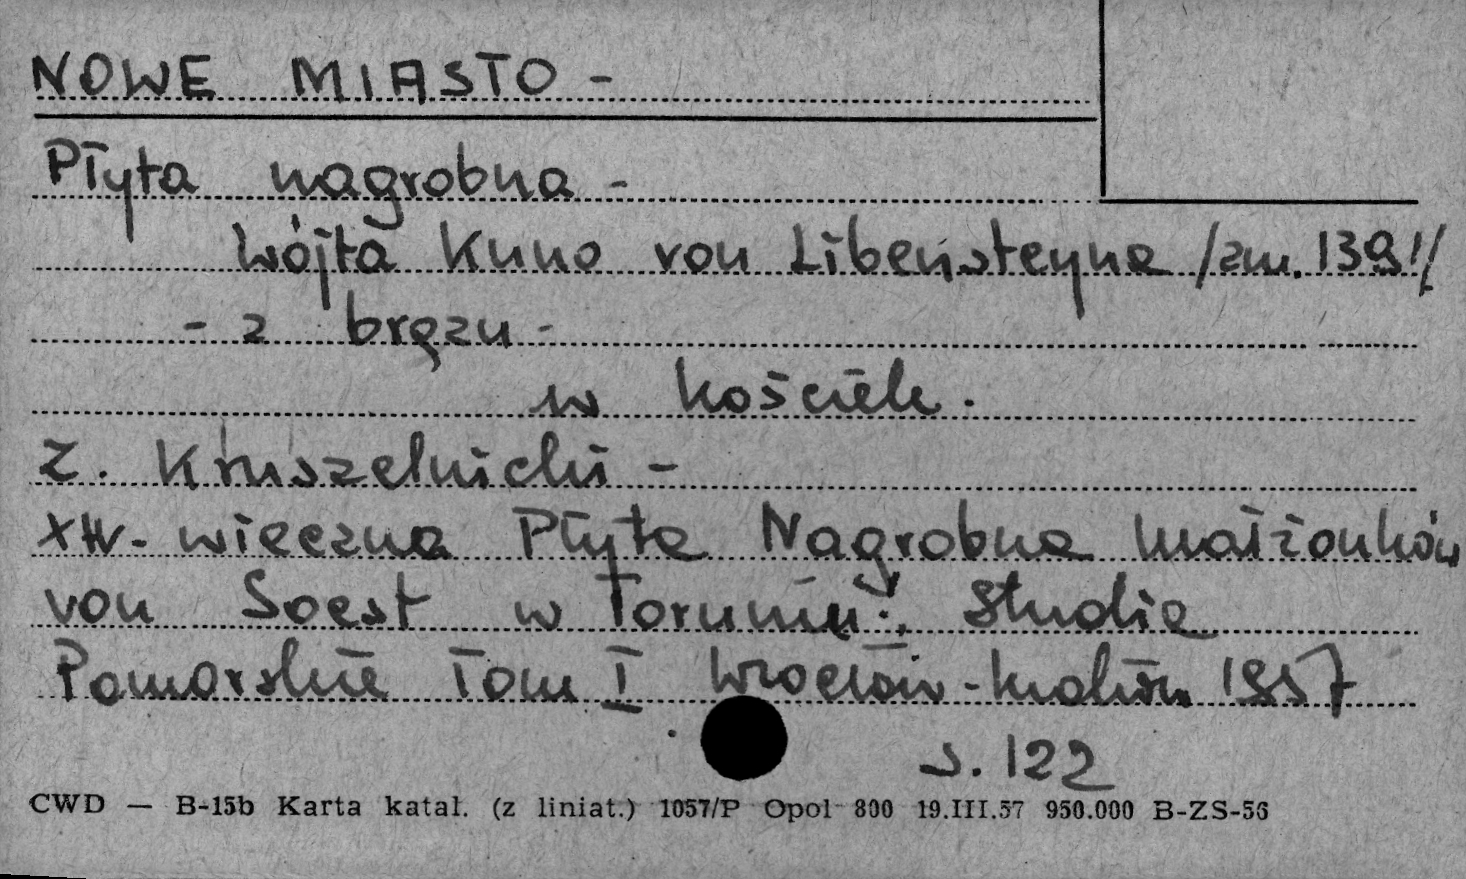 NOWE MIASTO -
Płyta nagrobna -
Wójta Kuno von Libensteyna /zm. 1391/
- z brązu -
w kościele.
Z. Kruszelnicki -
XIV-wieczna Płyta Nagrobna małżonków
von Soest w Toruniu:, Studia
Pomorskie Tom I Wrocław-Kraków 1957
s. 122
CWD — B-15b Karta katal. (z liniat.) 1057/P Opol 800 19.III.57 950.000 B-ZS-56